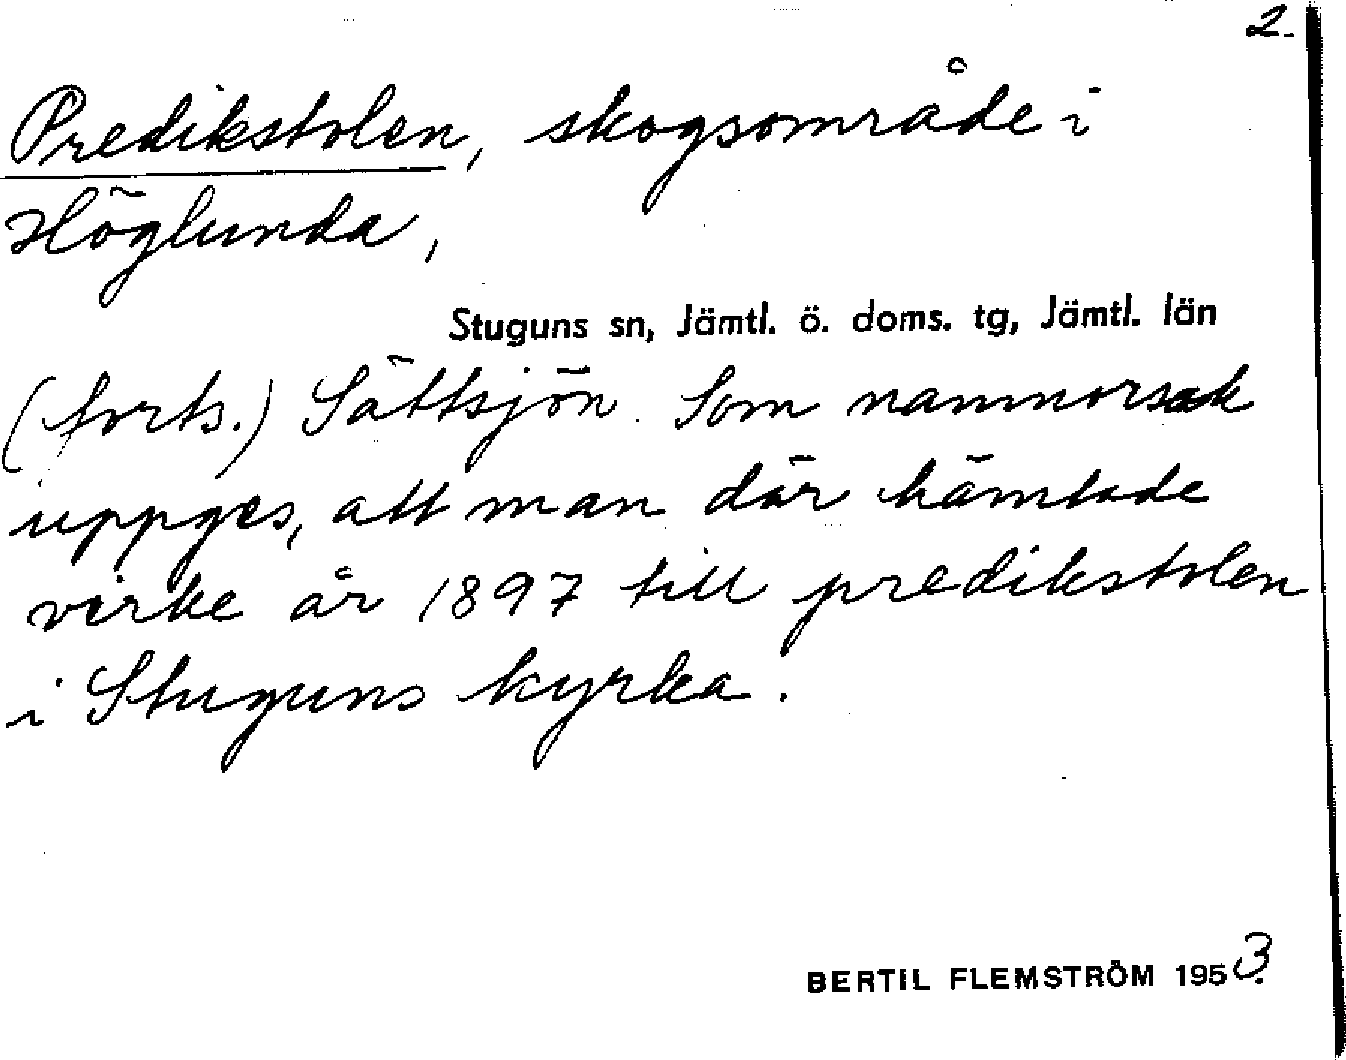 2.
Predikstolen, skogsområde i
Höglunda,
Stuguns sn, Jämtl. ö. doms. tg, Jämtl. län
(forts.) Sättsjön. Som namnorsak
uppges, att man där hämtade
virke år 1897 till predikstolen
i Stuguns kyrka.
BERTIL FLEMSTRÖM 1953.